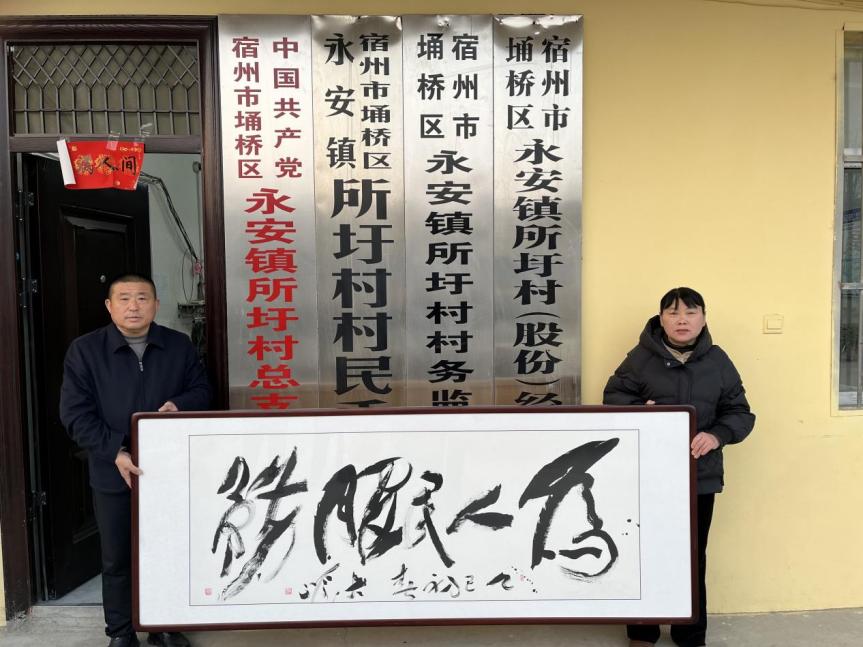 中国共产党
宿州市埇桥区
永安镇所圩村总支
宿州市埇桥区
永安镇
所圩村村民
宿州市
埇桥区
永安镇所圩村村务监
宿州市
埇桥区
永安镇所圩村(股份)经
人间
為人民服務
乙巳初春